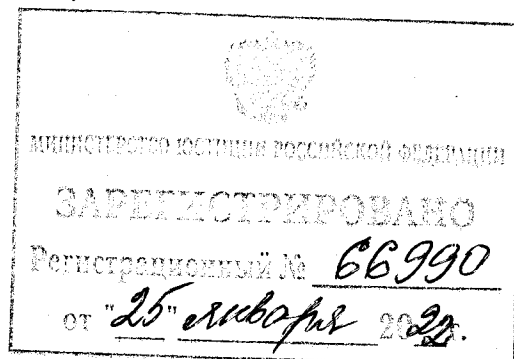 МИНИСТЕРСТВО ЮСТИЦИИ РОССИЙСКОЙ ФЕДЕРАЦИИ
ЗАРЕГИСТРИРОВАНО
Регистрационный № 66990
от "25" января 2022г.